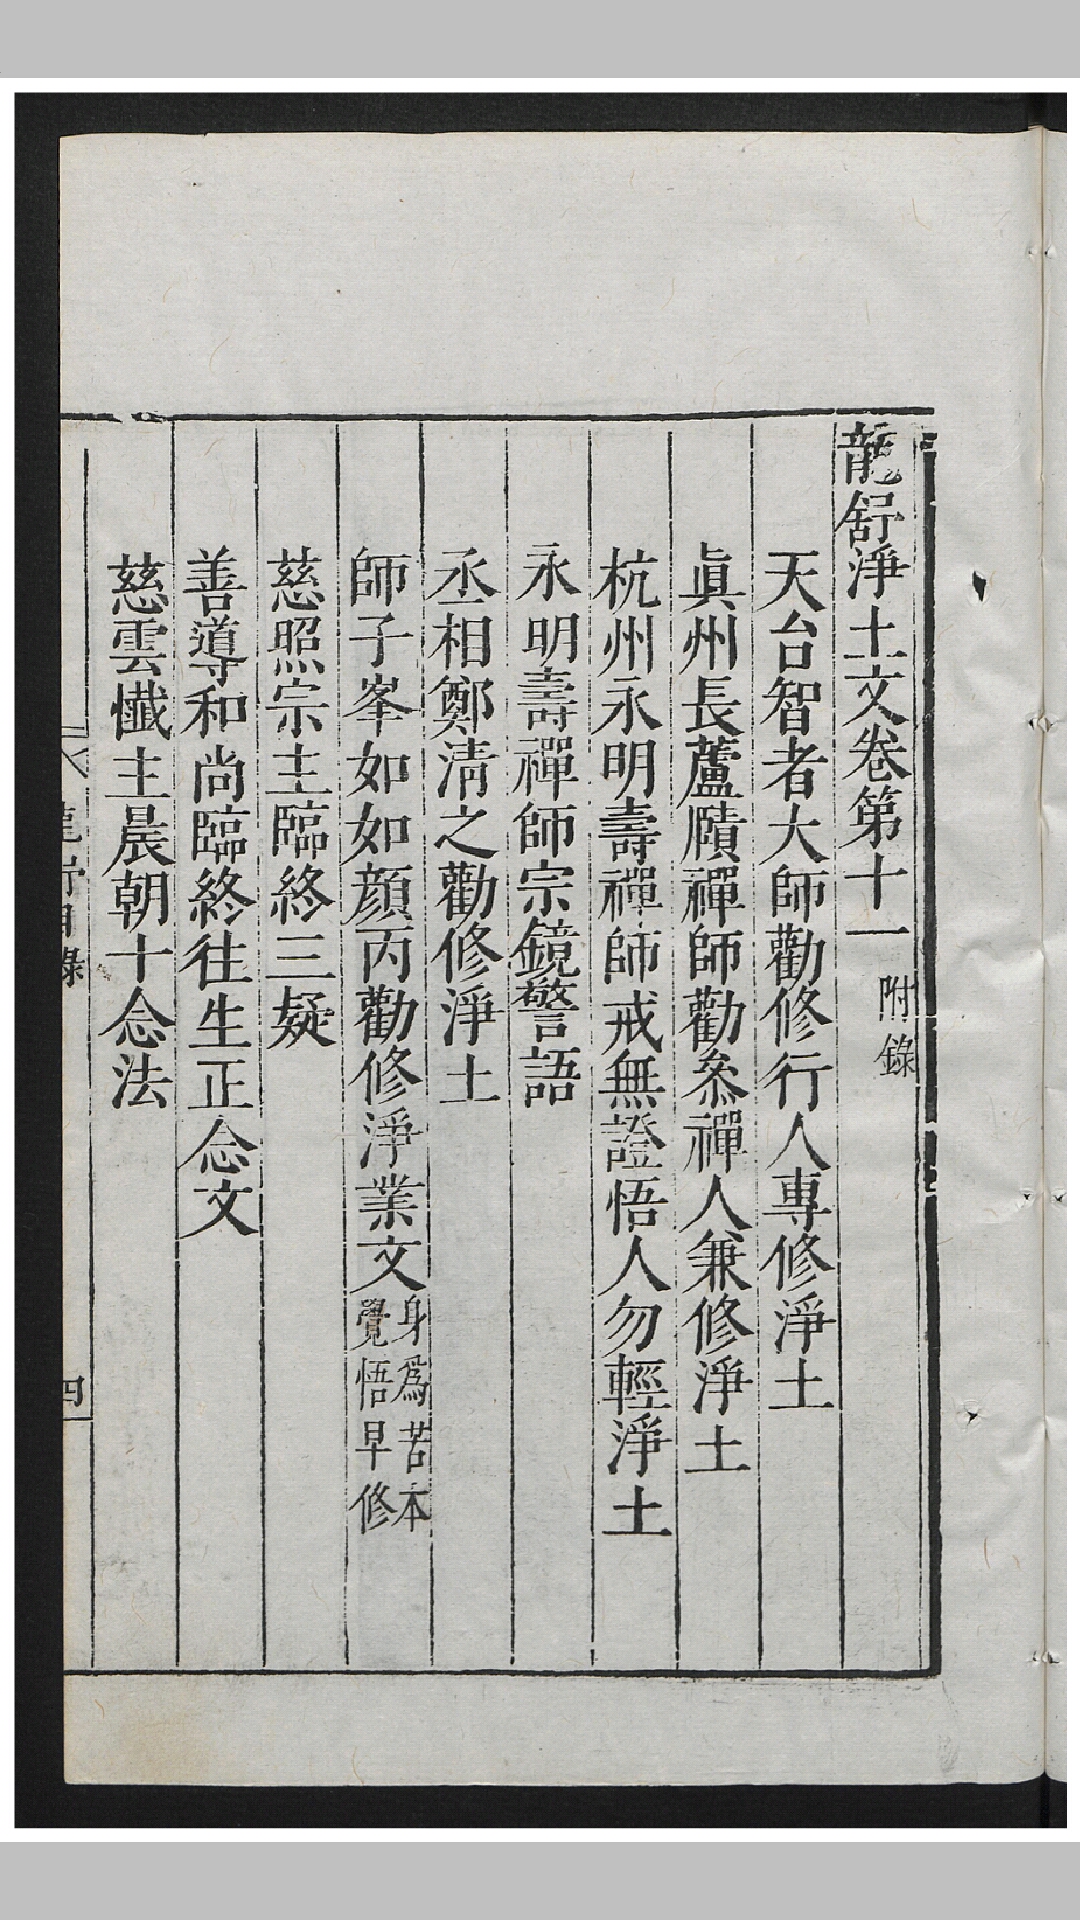 龍舒淨土文卷第十一 附錄
天台智者大師勸修行人專修淨土
眞州長蘆賾禪師勸叅禪人兼修淨土
杭州永明壽禪師戒無證悟人勿輕淨土
永明壽禪師宗鏡警語
丞相鄭清之勸修淨土
師子峯如如顏丙勸修淨業文 身爲苦本 覺悟早修
慈照宗主臨終三疑
善導和尚臨終往生正念文
慈雲懺主晨朝十念法
龍舒目錄
四